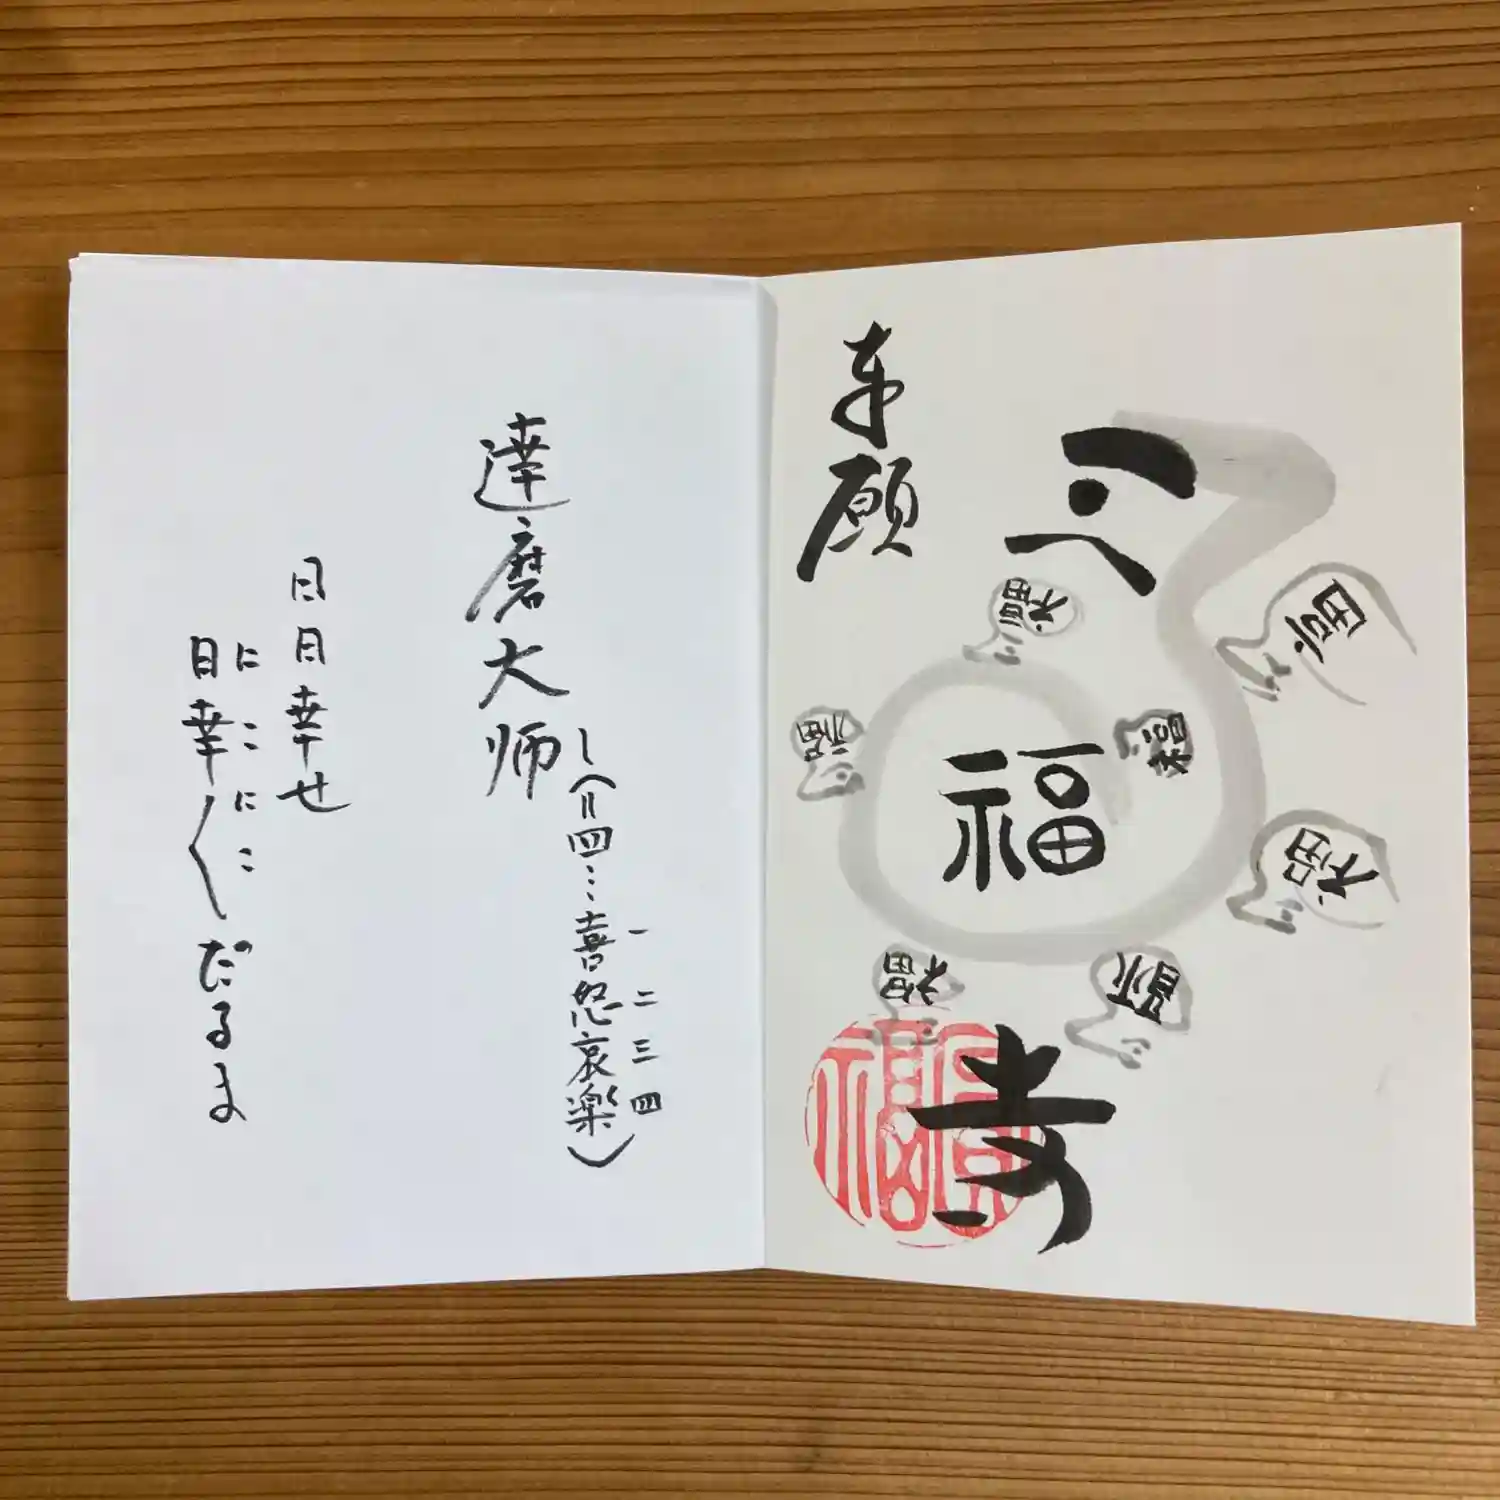 福
寺
福
福
福
福
福
福
願
一 二 三 四
(=四…喜怒哀楽)
達磨大师
日日幸せ
にこにこ
日幸く だるま